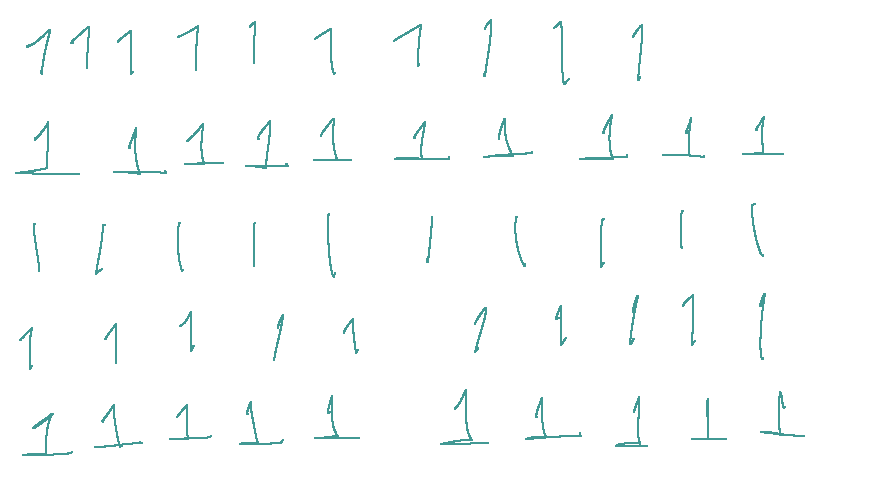 1 1 1 1 1 1 1 1 1 1
1 1 1 1 1 1 1 1 1 1
1 1 1 1 1 1 1 1 1 1
1 1 1 1 1 1 1 1 1 1
1 1 1 1 1 1 1 1 1 1